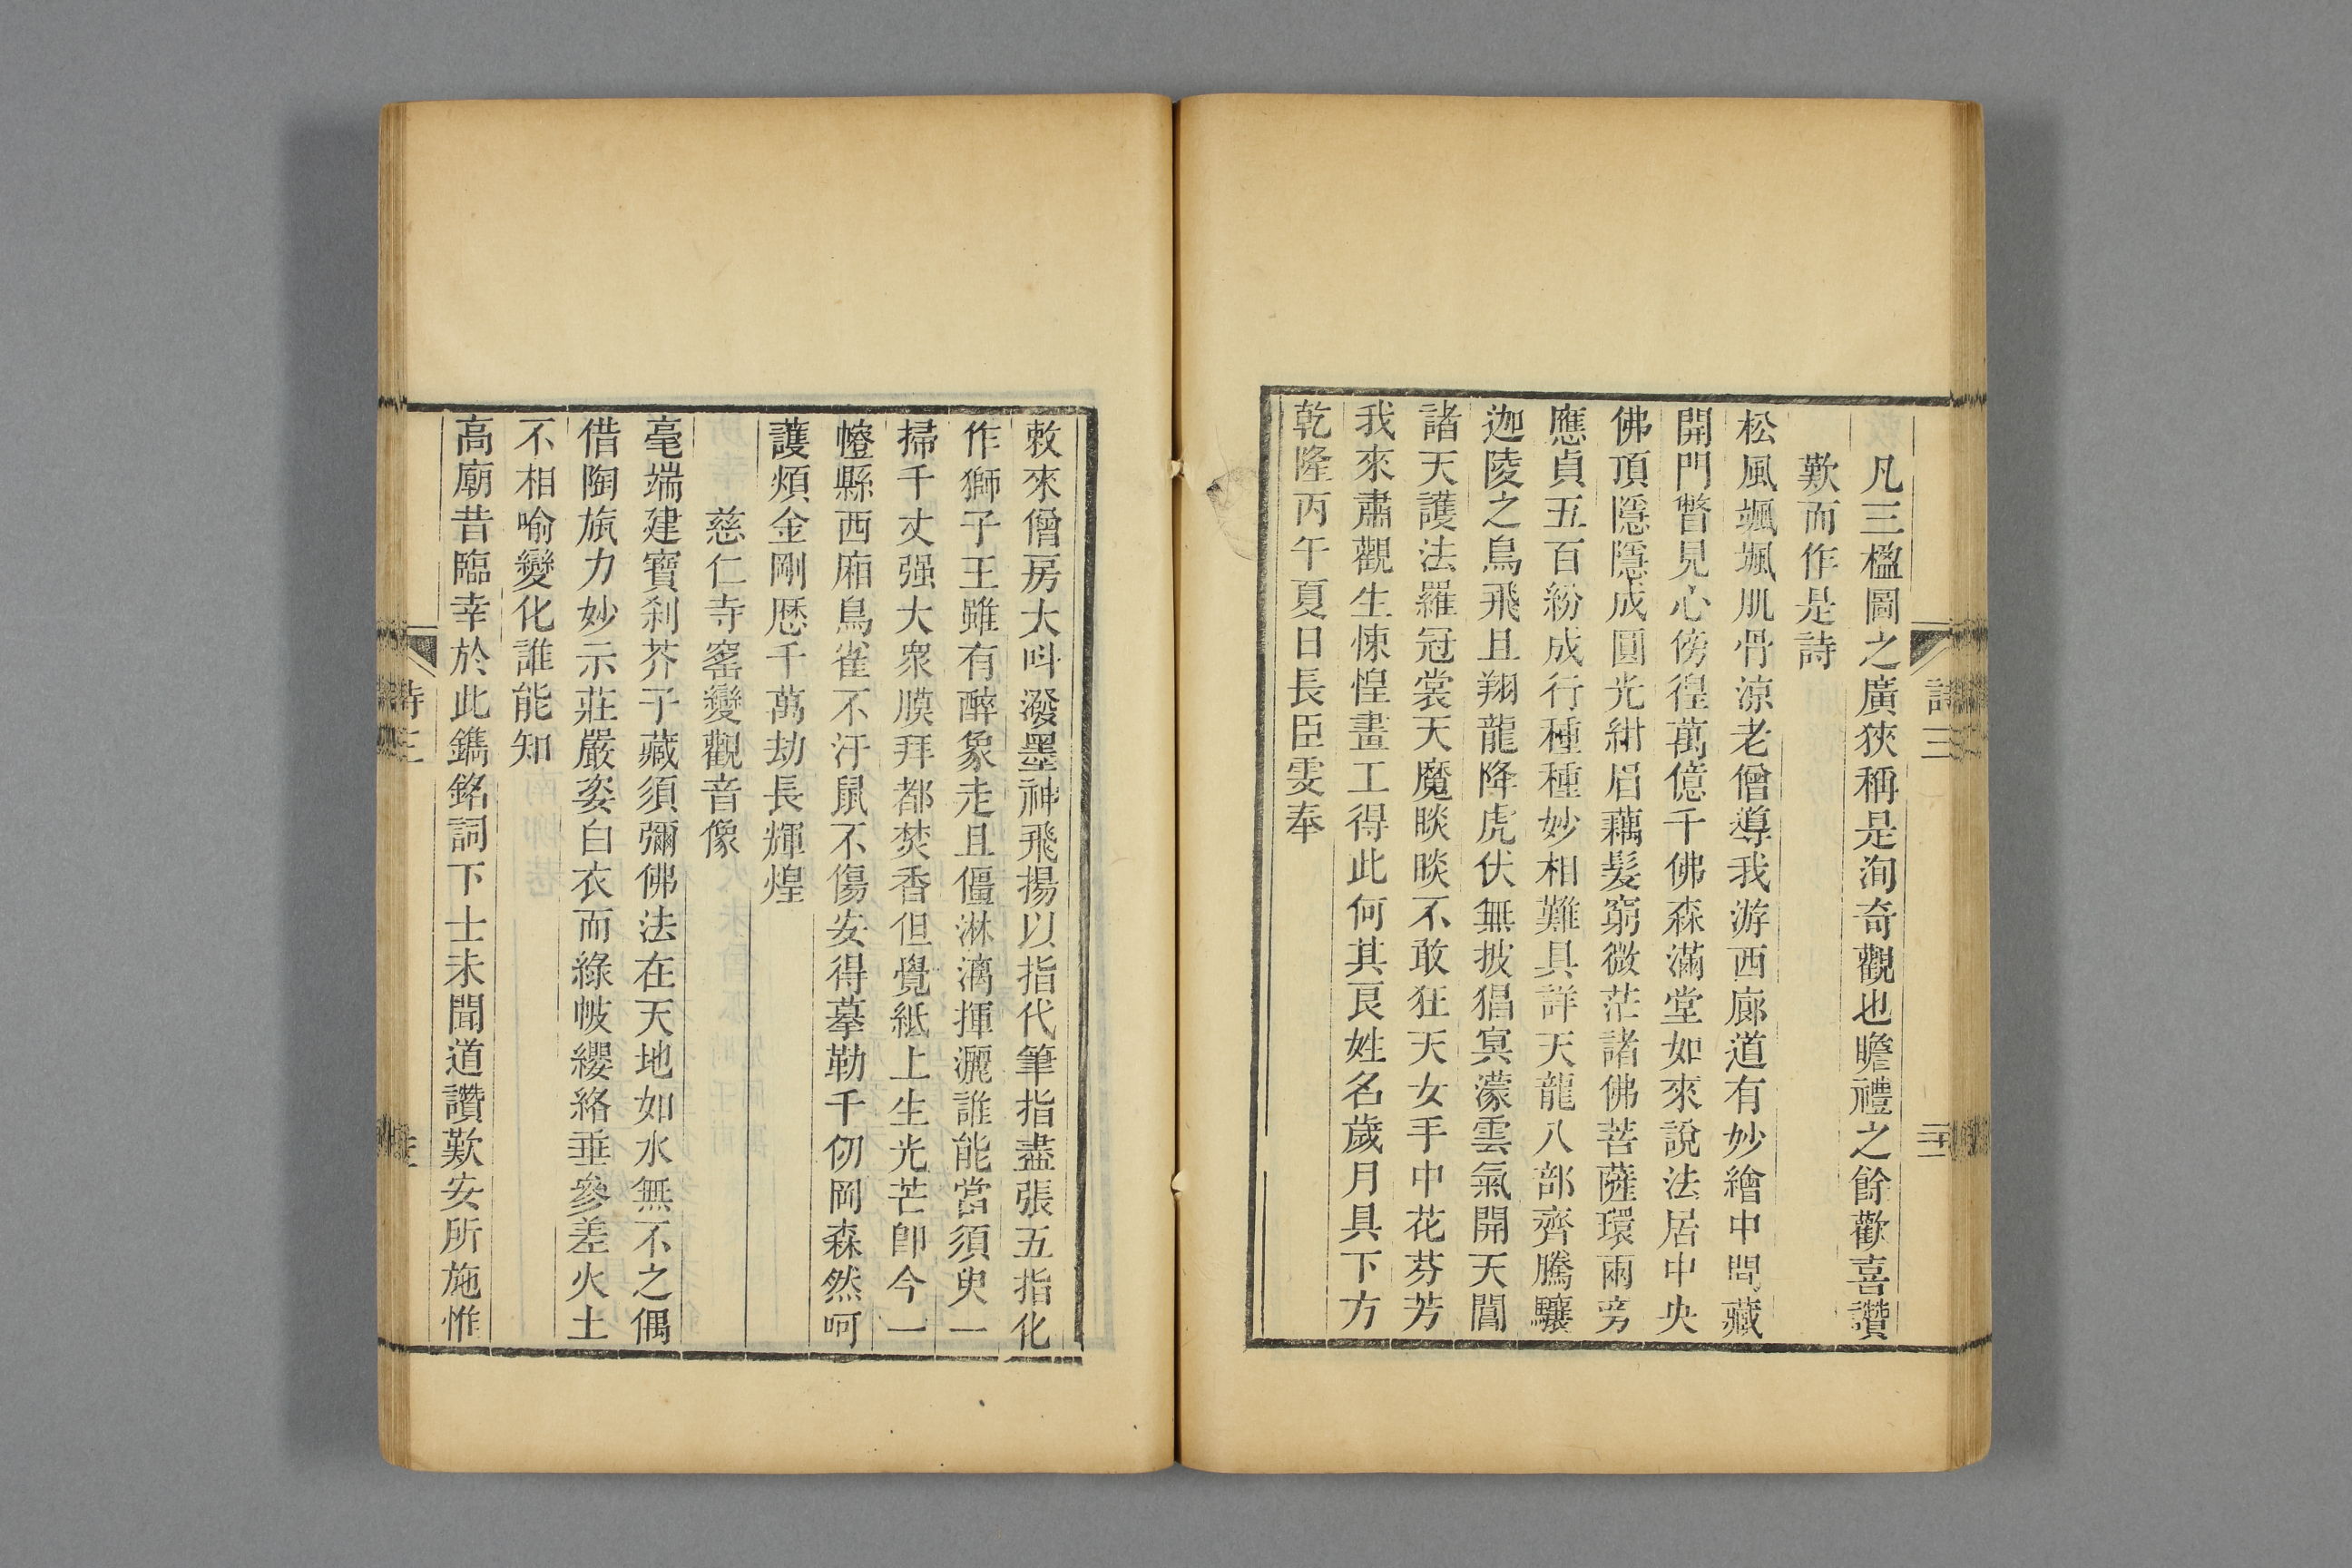 凡三楹圖之廣狹稱是洵奇觀也瞻禮之餘歡喜讚
歎而作是詩
松風颯颯肌骨涼老僧導我游西廊道有妙繪中閟藏
開門瞥見心傍徨萬億千佛森滿堂如來說法居中央
佛頂隱隱成圓光紺眉藕髮窮微茫諸佛菩薩環兩旁
應貞五百紛成行種種妙相難具詳天龍八部齊騰驤
迦陵之鳥飛且翔龍降虎伏無披猖冥濛雲氣開天閶
諸天護法羅冠裳天魔睒睒不敢狂天女手中花芬芳
我來肅觀生悚惶畫工得此何其良姓名歲月具下方
乾隆丙午夏日長臣雯奉
敕來僧房大呌潑墨神飛揚以指代筆指盡張五指化
作獅子王雖有醉象走且僵淋漓揮灑誰能當須臾一
掃千丈强大衆膜拜都焚香但覺紙上生光芒卽今一
㡧縣西廂鳥雀不汙鼠不傷安得摹勒千仞岡森然呵
護煩金剛歷千萬劫長輝煌
慈仁寺窰變觀音像
毫端建寶刹芥子藏須彌佛法在天地如水無不之偶
借陶旊力妙示莊嚴姿白衣而綠帔纓絡垂參差火土
不相喻變化誰能知
高廟昔臨幸於此鐫銘詞下士未聞道讚歎安所施惟
詩三